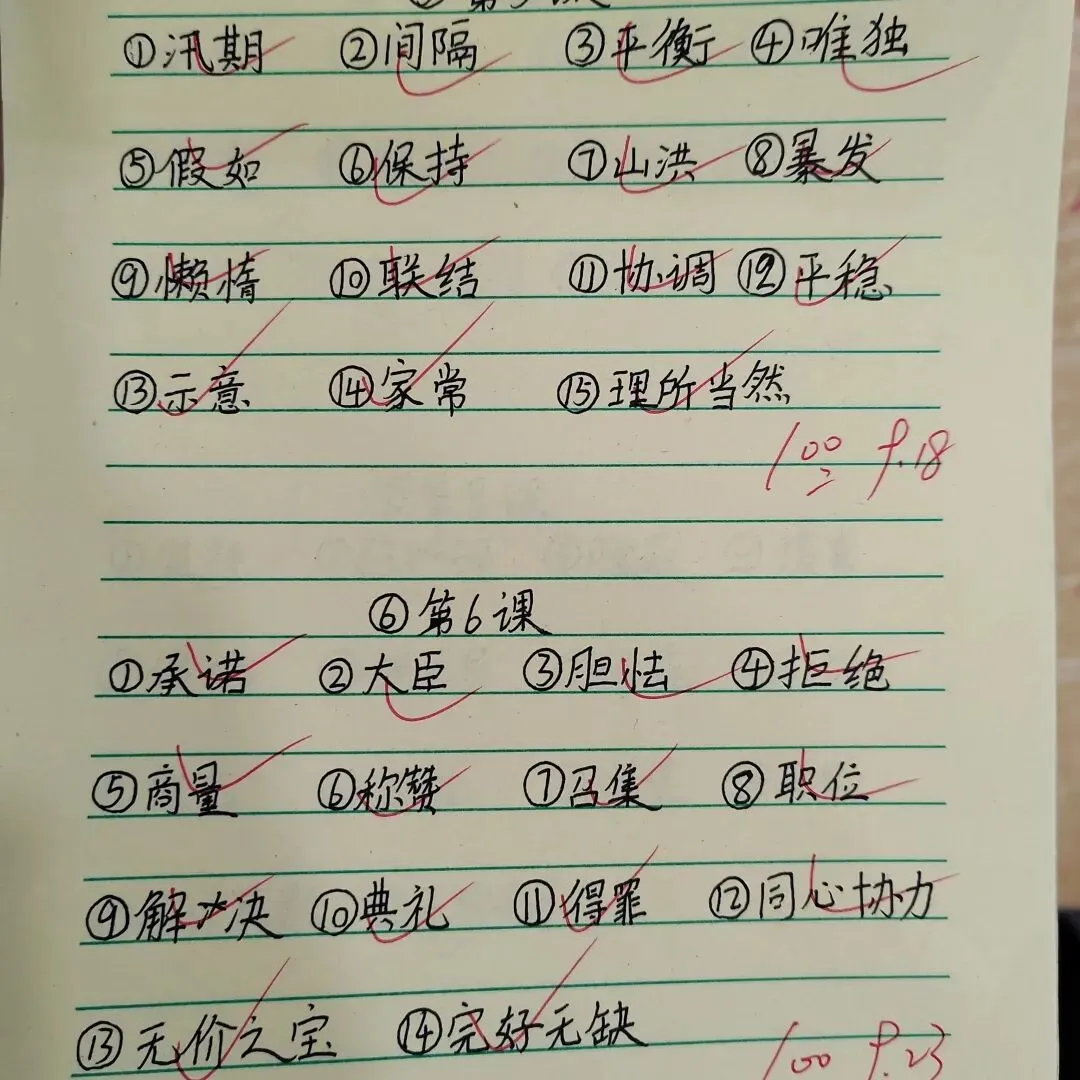 ① 汛期 ② 间隔 ③ 平衡 ④ 唯独
⑤ 假如 ⑥ 保持 ⑦ 山洪 ⑧ 暴发
⑨ 懒惰 ⑩ 联结 ⑪ 协调 ⑫ 平稳
⑬ 示意 ⑭ 家常 ⑮ 理所当然
100 9.18
⑥ 第6课
① 承诺 ② 大臣 ③ 胆怯 ④ 拒绝
⑤ 商量 ⑥ 称赞 ⑦ 召集 ⑧ 职位
⑨ 解决 ⑩ 典礼 ⑪ 得罪 ⑫ 同心协力
⑬ 无价之宝 ⑭ 完好无缺
100 9.23